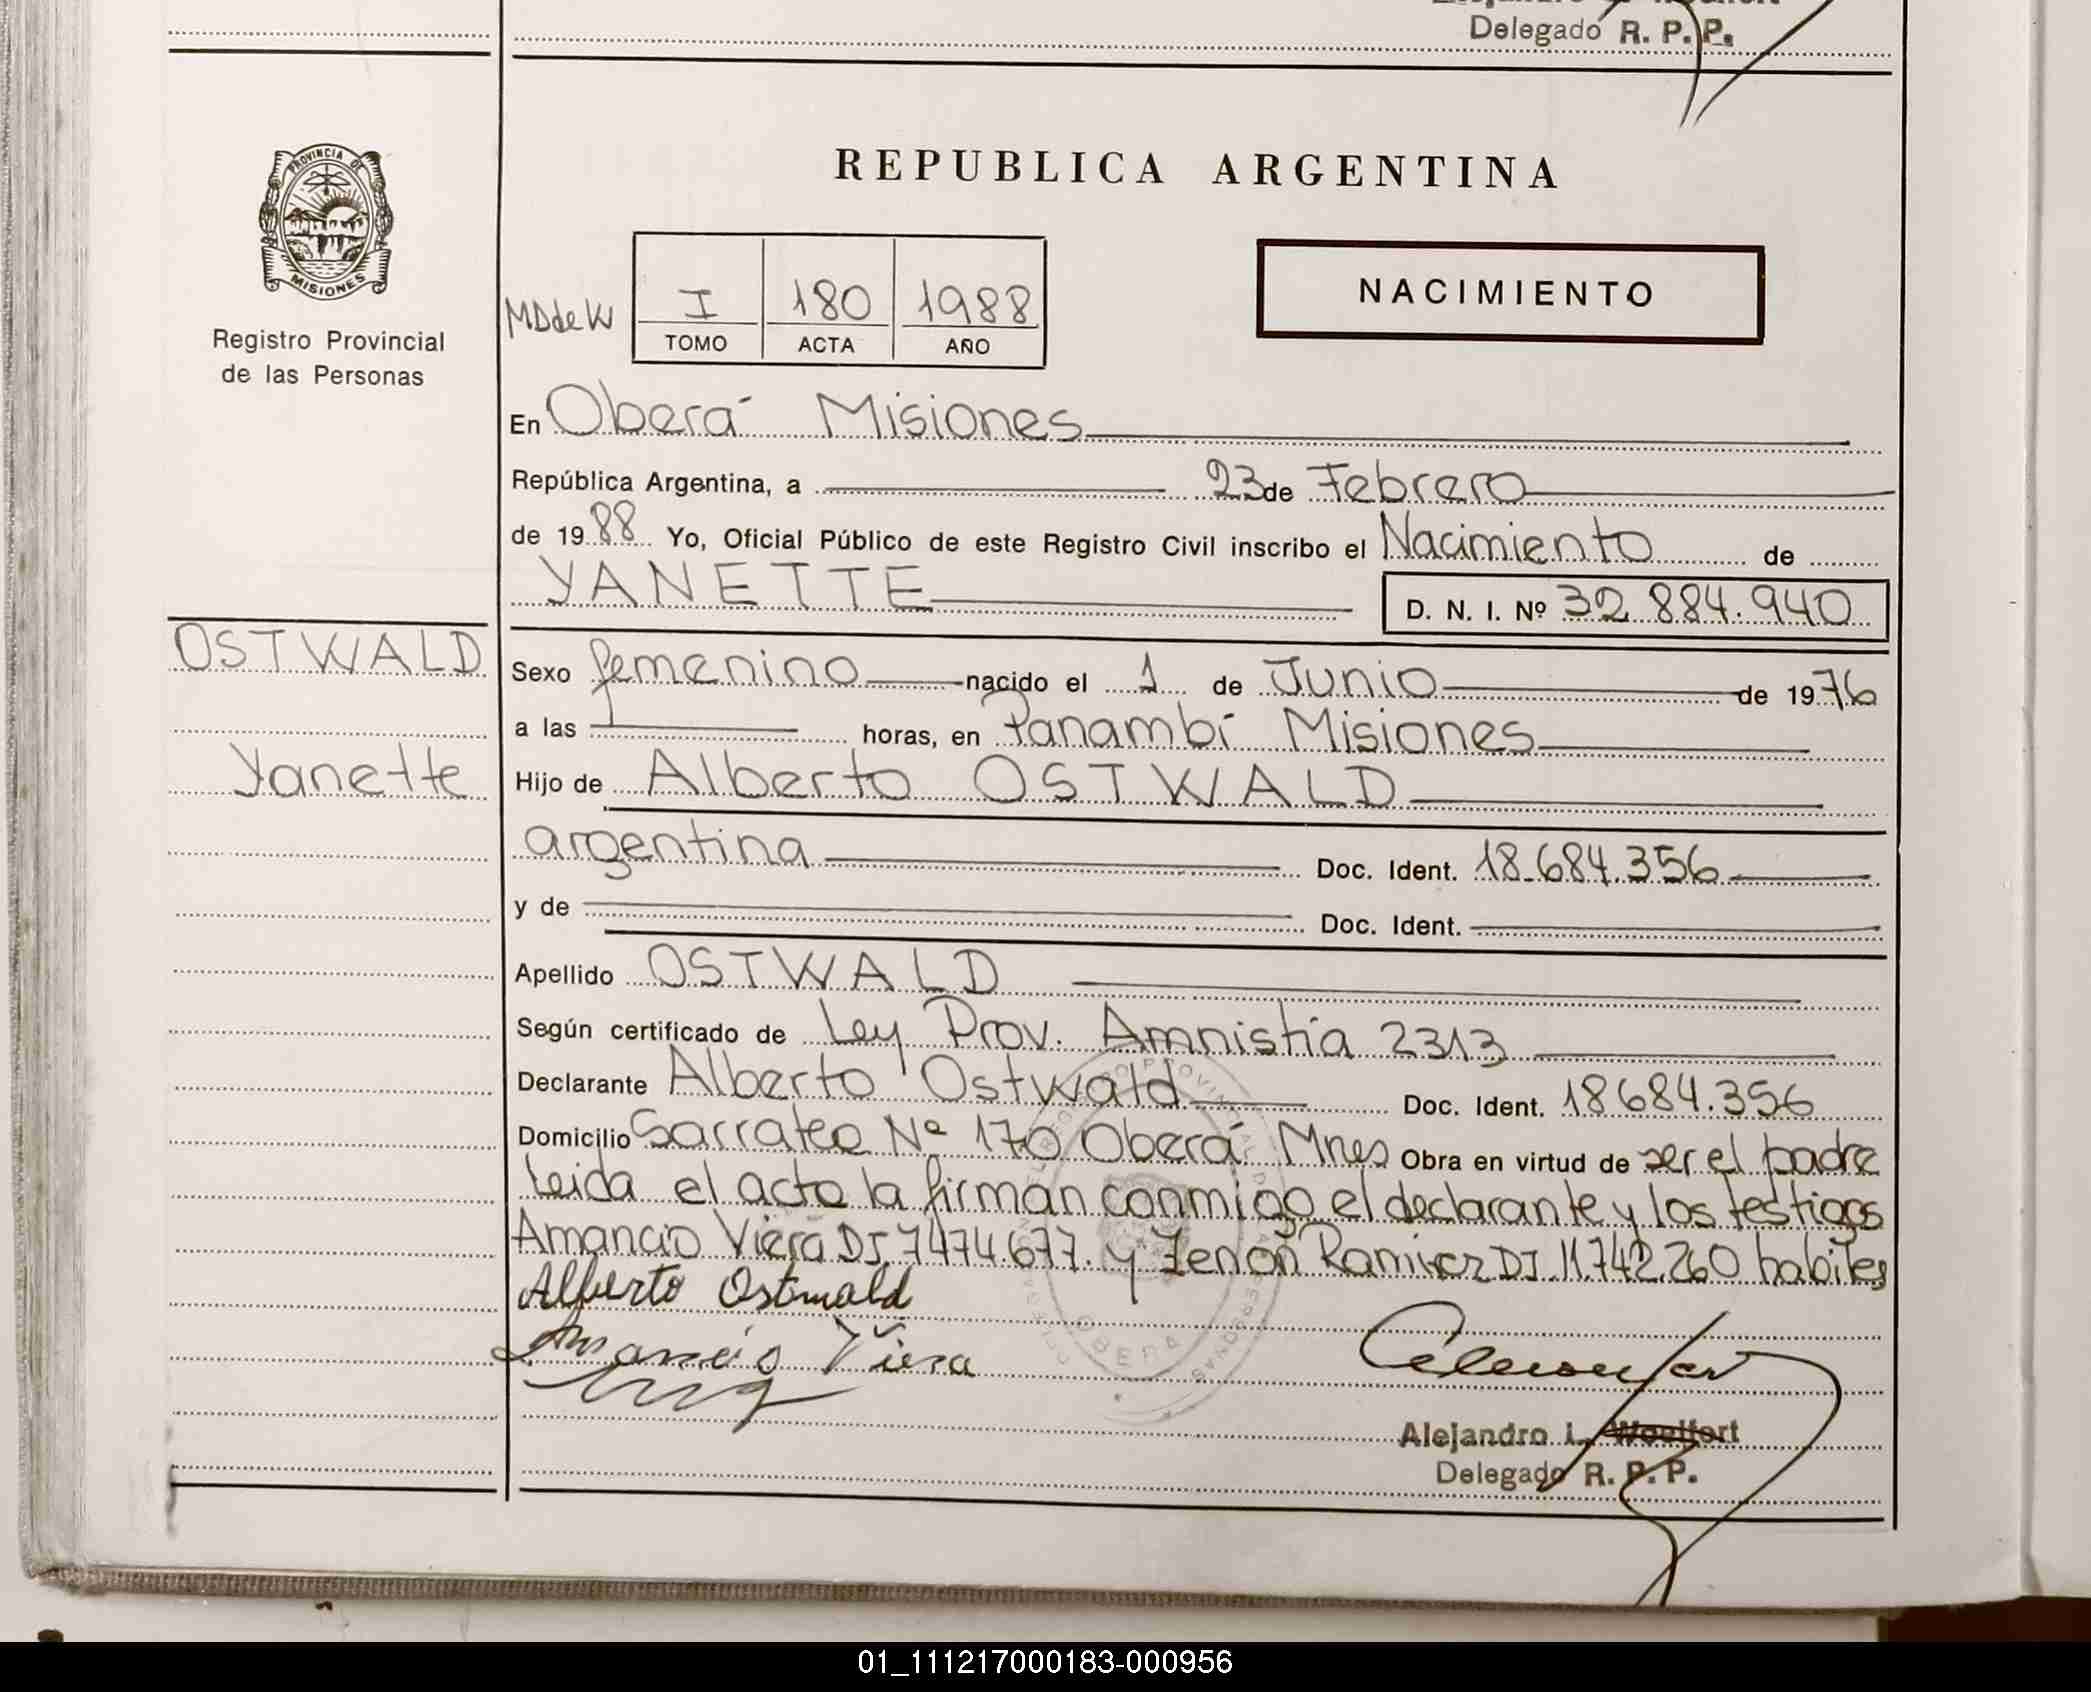 Delegado R. P. P.
PROVINCIA DE
MISIONES
Registro Provincial
de las Personas
REPUBLICA ARGENTINA
NACIMIENTO
MDdeW
I 180 1988
TOMO ACTA AÑO
En Oberá Misiones
República Argentina, a 23 de Febrero
de 1988 Yo, Oficial Público de este Registro Civil inscribo el Nacimiento de
YANETTE
D. N. I. Nº 32.884.940
OSTWALD
Yanette
Sexo femenino nacido el 1 de Junio de 1976
a las horas, en Panambí Misiones
Hijo de Alberto OSTWALD
argentina Doc. Ident. 18.684.356
y de Doc. Ident.
Apellido OSTWALD
Según certificado de Ley Prov. Amnistía 2313
Declarante Alberto Ostwald Doc. Ident. 18684.356
Domicilio Sarrateo Nº 170 Oberá Mnes Obra en virtud de ser el padre
Leida el acta la firman conmigo el declarante y los testigos
Amancio Viera DI 7474.677. y Zenón Ramirez DI 11.742.260 habiles
Alberto Ostwald
Amancio Viera
OBERA
Alejandro L. Woelfort
Delegado R. P. P.
01_111217000183-000956